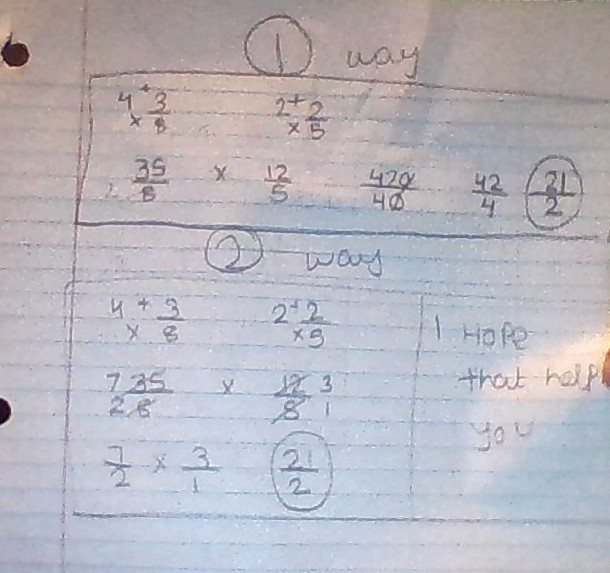 1 way
4 + 3/8 × 2 + 2/5 ×
35/8 × 12/5 420/40 42/4 21/2
2 way
4 + 3/8 × 2 + 2/5 ×
7 35/2 8 × 12 3/5 1
7/2 × 3/1 21/2
I HOPE
that help
you